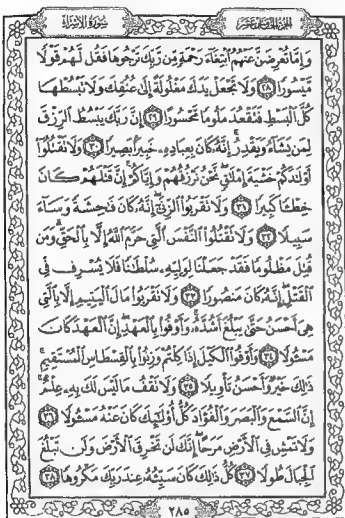 سُورَةُ الإِسْرَاءِ
الجُزْءُ الخَامِسَ عَشَرَ
وَإِمَّا تُعْرِضَنَّ عَنْهُمُ ٱبْتِغَآءَ رَحْمَةٍ مِّن رَّبِّكَ تَرْجُوهَا فَقُل لَّهُمْ قَوْلًا
مَّيْسُورًا ٢٨ وَلَا تَجْعَلْ يَدَكَ مَغْلُولَةً إِلَىٰ عُنُقِكَ وَلَا تَبْسُطْهَا
كُلَّ ٱلْبَسْطِ فَتَقْعُدَ مَلُومًا مَّحْسُورًا ٢٩ إِنَّ رَبَّكَ يَبْسُطُ ٱلرِّزْقَ
لِمَن يَشَآءُ وَيَقْدِرُ إِنَّهُۥ كَانَ بِعِبَادِهِۦ خَبِيرًۢا بَصِيرًا ٣٠ وَلَا تَقْتُلُوٓا۟
أَوْلَٰدَكُمْ خَشْيَةَ إِمْلَٰقٍ نَّحْنُ نَرْزُقُهُمْ وَإِيَّاكُمْ إِنَّ قَتْلَهُمْ كَانَ
خِطْـًٔا كَبِيرًا ٣١ وَلَا تَقْرَبُوا۟ ٱلزِّنَىٰٓ إِنَّهُۥ كَانَ فَٰحِشَةً وَسَآءَ
سَبِيلًا ٣٢ وَلَا تَقْتُلُوا۟ ٱلنَّفْسَ ٱلَّتِى حَرَّمَ ٱللَّهُ إِلَّا بِٱلْحَقِّ وَمَن
قُتِلَ مَظْلُومًا فَقَدْ جَعَلْنَا لِوَلِيِّهِۦ سُلْطَٰنًا فَلَا يُسْرِف فِّى
ٱلْقَتْلِ إِنَّهُۥ كَانَ مَنصُورًا ٣٣ وَلَا تَقْرَبُوا۟ مَالَ ٱلْيَتِيمِ إِلَّا بِٱلَّتِى
هِىَ أَحْسَنُ حَتَّىٰ يَبْلُغَ أَشُدَّهُۥ وَأَوْفُوا۟ بِٱلْعَهْدِ إِنَّ ٱلْعَهْدَ كَانَ
مَسْـُٔولًا ٣٤ وَأَوْفُوا۟ ٱلْكَيْلَ إِذَا كِلْتُمْ وَزِنُوا۟ بِٱلْقِسْطَاسِ ٱلْمُسْتَقِيمِ
ذَٰلِكَ خَيْرٌ وَأَحْسَنُ تَأْوِيلًا ٣٥ وَلَا تَقْفُ مَا لَيْسَ لَكَ بِهِۦ عِلْمٌ
إِنَّ ٱلسَّمْعَ وَٱلْبَصَرَ وَٱلْفُؤَادَ كُلُّ أُو۟لَٰٓئِكَ كَانَ عَنْهُ مَسْـُٔولًا ٣٦
وَلَا تَمْشِ فِى ٱلْأَرْضِ مَرَحًا إِنَّكَ لَن تَخْرِقَ ٱلْأَرْضَ وَلَن تَبْلُغَ
ٱلْجِبَالَ طُولًا ٣٧ كُلُّ ذَٰلِكَ كَانَ سَيِّئُهُۥ عِندَ رَبِّكَ مَكْرُوهًا ٣٨
٢٨٥